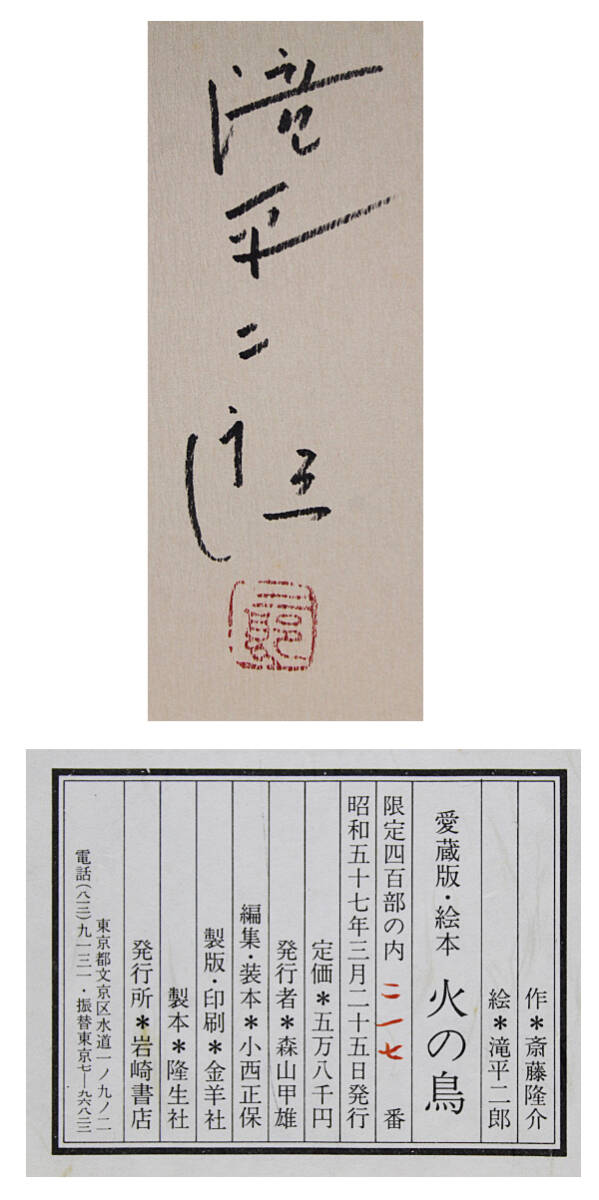 滝平二郎
二郎
作＊斎藤隆介
絵＊滝平二郎
愛蔵版・絵本 火の鳥
限定四百部の内 二一七 番
昭和五十七年三月二十五日発行
定価＊五万八千円
発行者＊森山甲雄
編集・装本＊小西正保
製版・印刷＊金羊社
製本＊隆生社
発行所＊岩崎書店
東京都文京区水道一ノ九ノ二
電話(八一三)九一三一・振替東京七―九六八二二